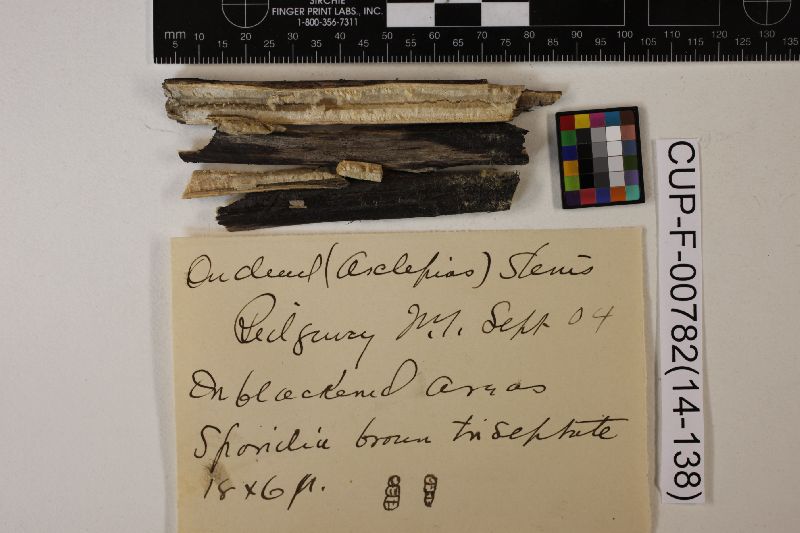 SIRCHIE
FINGER PRINT LABS., INC.
1-800-356-7311
mm
5 10 15 20 25 30 35 40 45 50 55 60 65 70 75 80 85 90 95 100 105 110 115 120 125 130 135
On dead (Asclepias) Stems
Ridgway N.Y. Sept 04
In blackened areas
Sporidia brown triseptate
18 x 6 µ.
CUP-F-00782(14-138)